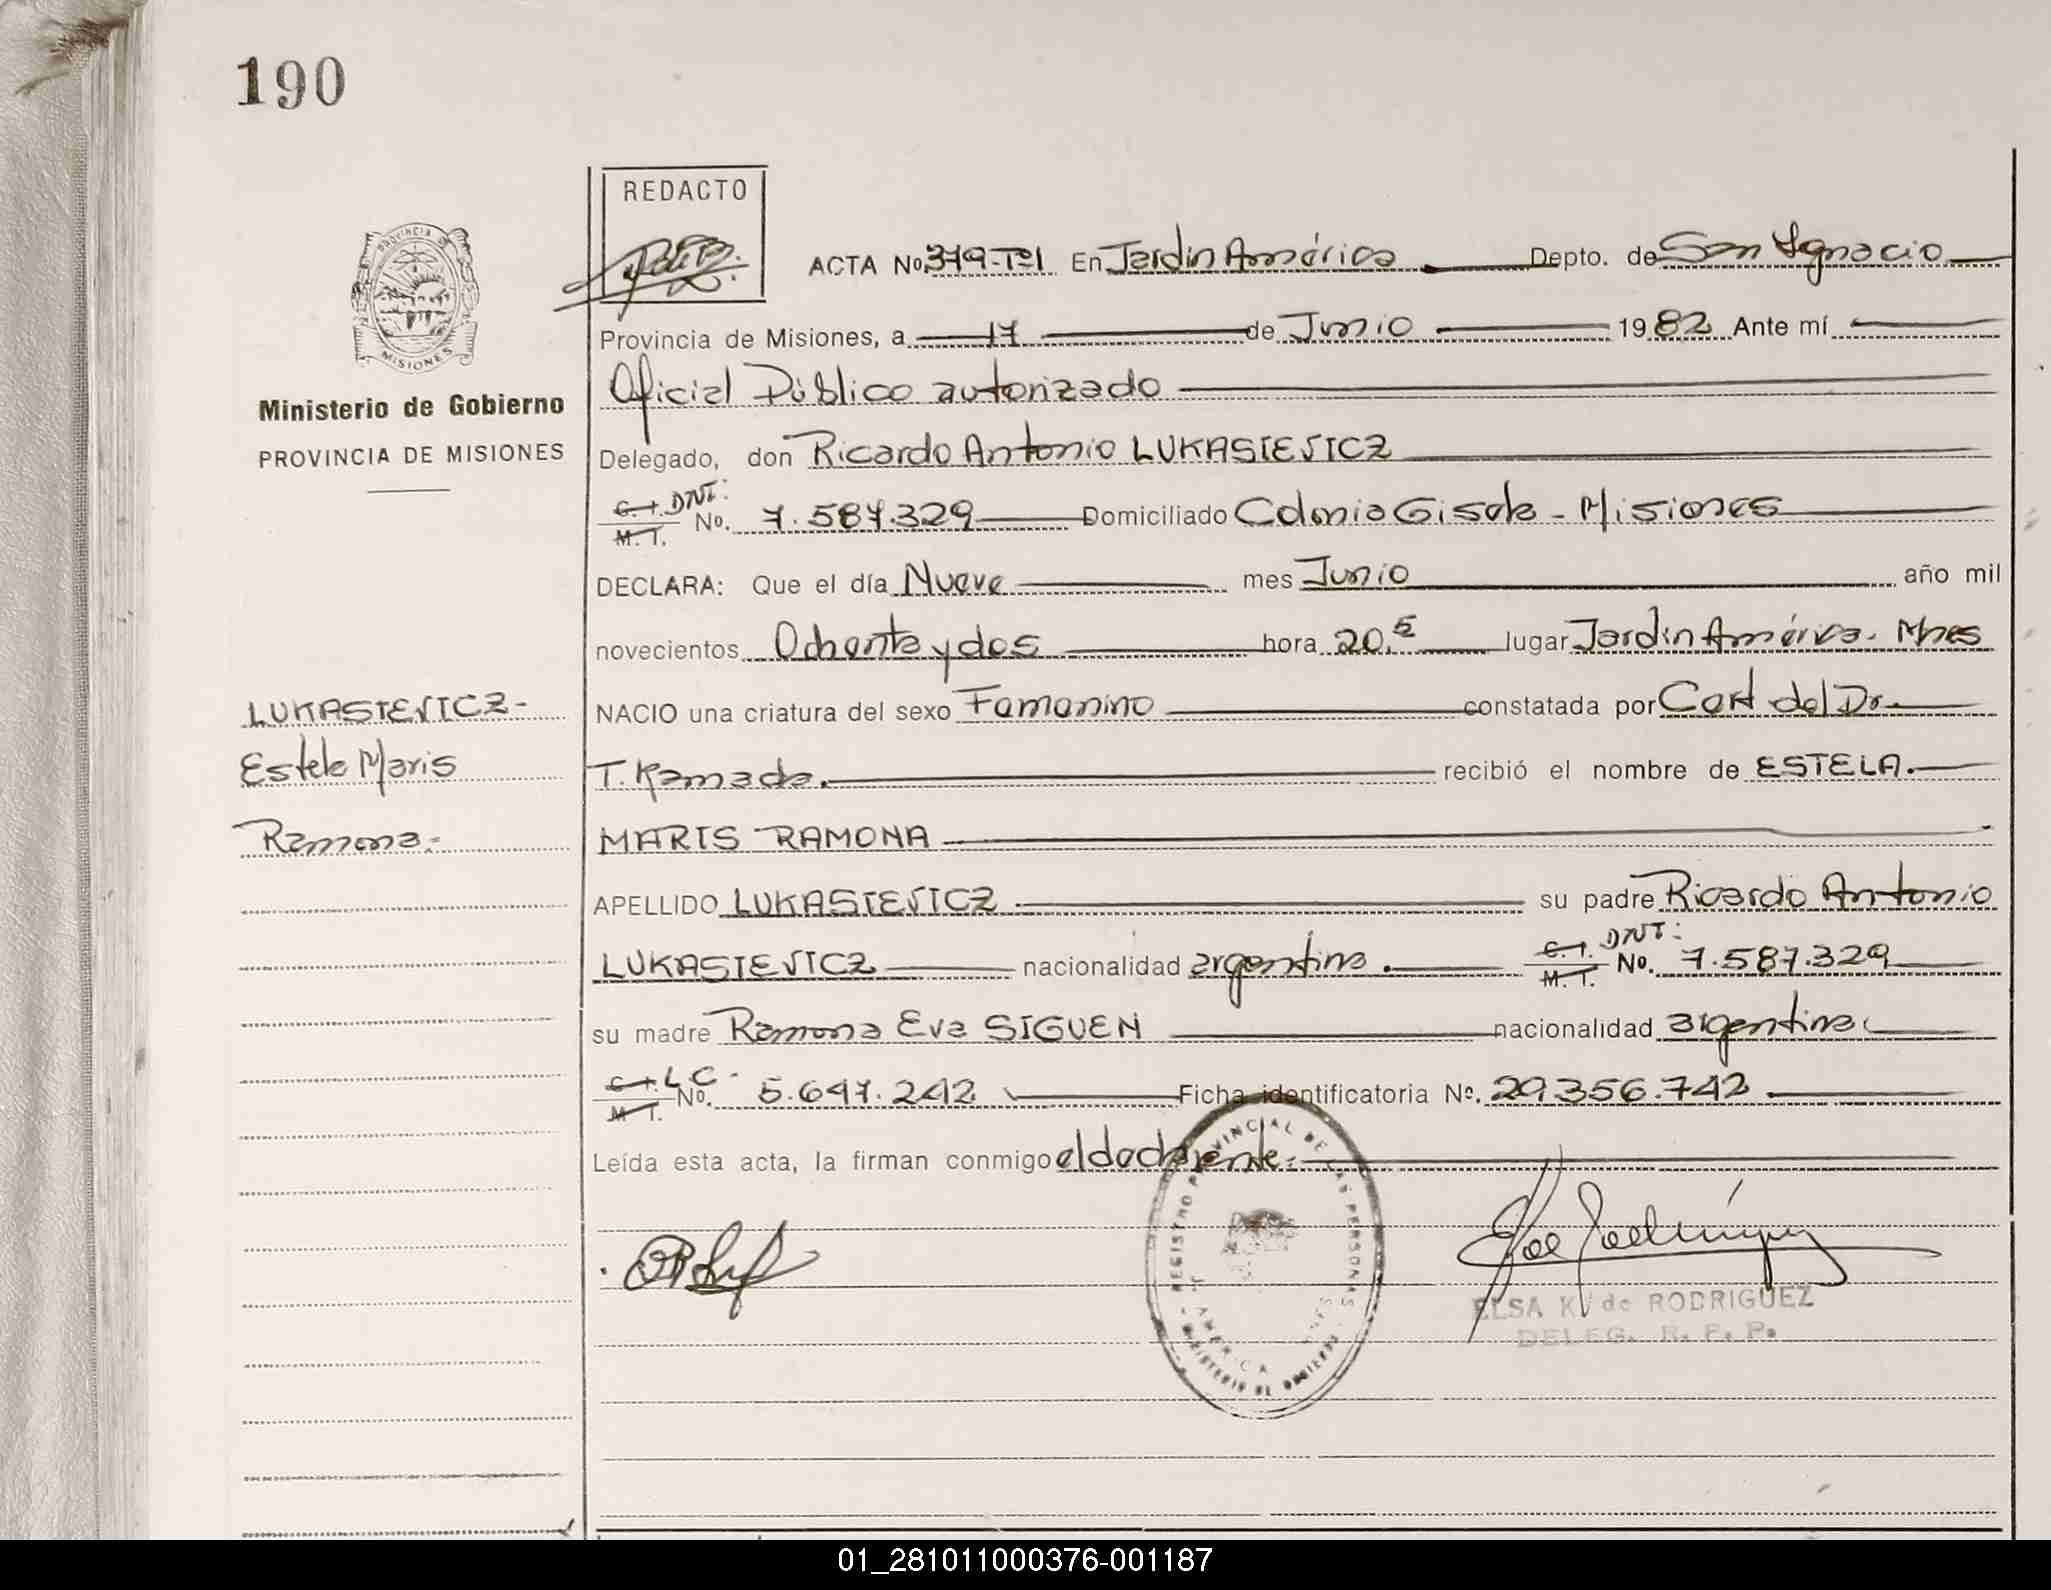 190
REDACTO
PROVINCIA DE
MISIONES
Ministerio de Gobierno
PROVINCIA DE MISIONES
ACTA No. 379-Tº1 En Jardín América Depto. de San Ignacio
Provincia de Misiones, a 17 de Junio 1982 Ante mí
Oficial Público autorizado
Delegado, don Ricardo Antonio LUKASIEVICZ
C. I. DNI: M. I. No. 7.587.329 Domiciliado Colonia Gisela - Misiones
DECLARA: Que el día Nueve mes Junio año mil
novecientos Ochenta y dos hora 20,5 lugar Jardín América. Mnes
LUKASIEVICZ-
Estela Maris
Ramona.-
NACIO una criatura del sexo Femenino constatada por Cert del Dr.
T. Kamada. recibió el nombre de ESTELA.
MARIS RAMONA
APELLIDO LUKASIEVICZ su padre Ricardo Antonio
LUKASIEVICZ nacionalidad argentina. C. I. DNI: M. I. No. 7.587.329
su madre Ramona Eva SIGUEN nacionalidad argentina
C. I. L C - M. I. No. 5.647.242 Ficha identificatoria Nº. 29.356.742
Leída esta acta, la firman conmigo el declarante.
REGISTRO PROVINCIAL DE LAS PERSONAS
J. AMERICA
MINISTERIO DE GOBIERNO
ELSA K. de RODRIGUEZ
DELEG. R. P. P.
01_281011000376-001187